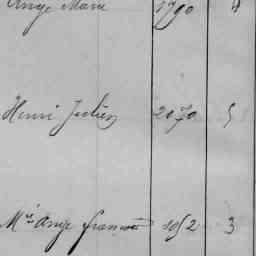 Ange Marie 1790
Henri Julien 2070 5
Mie Ange francois 1052 3